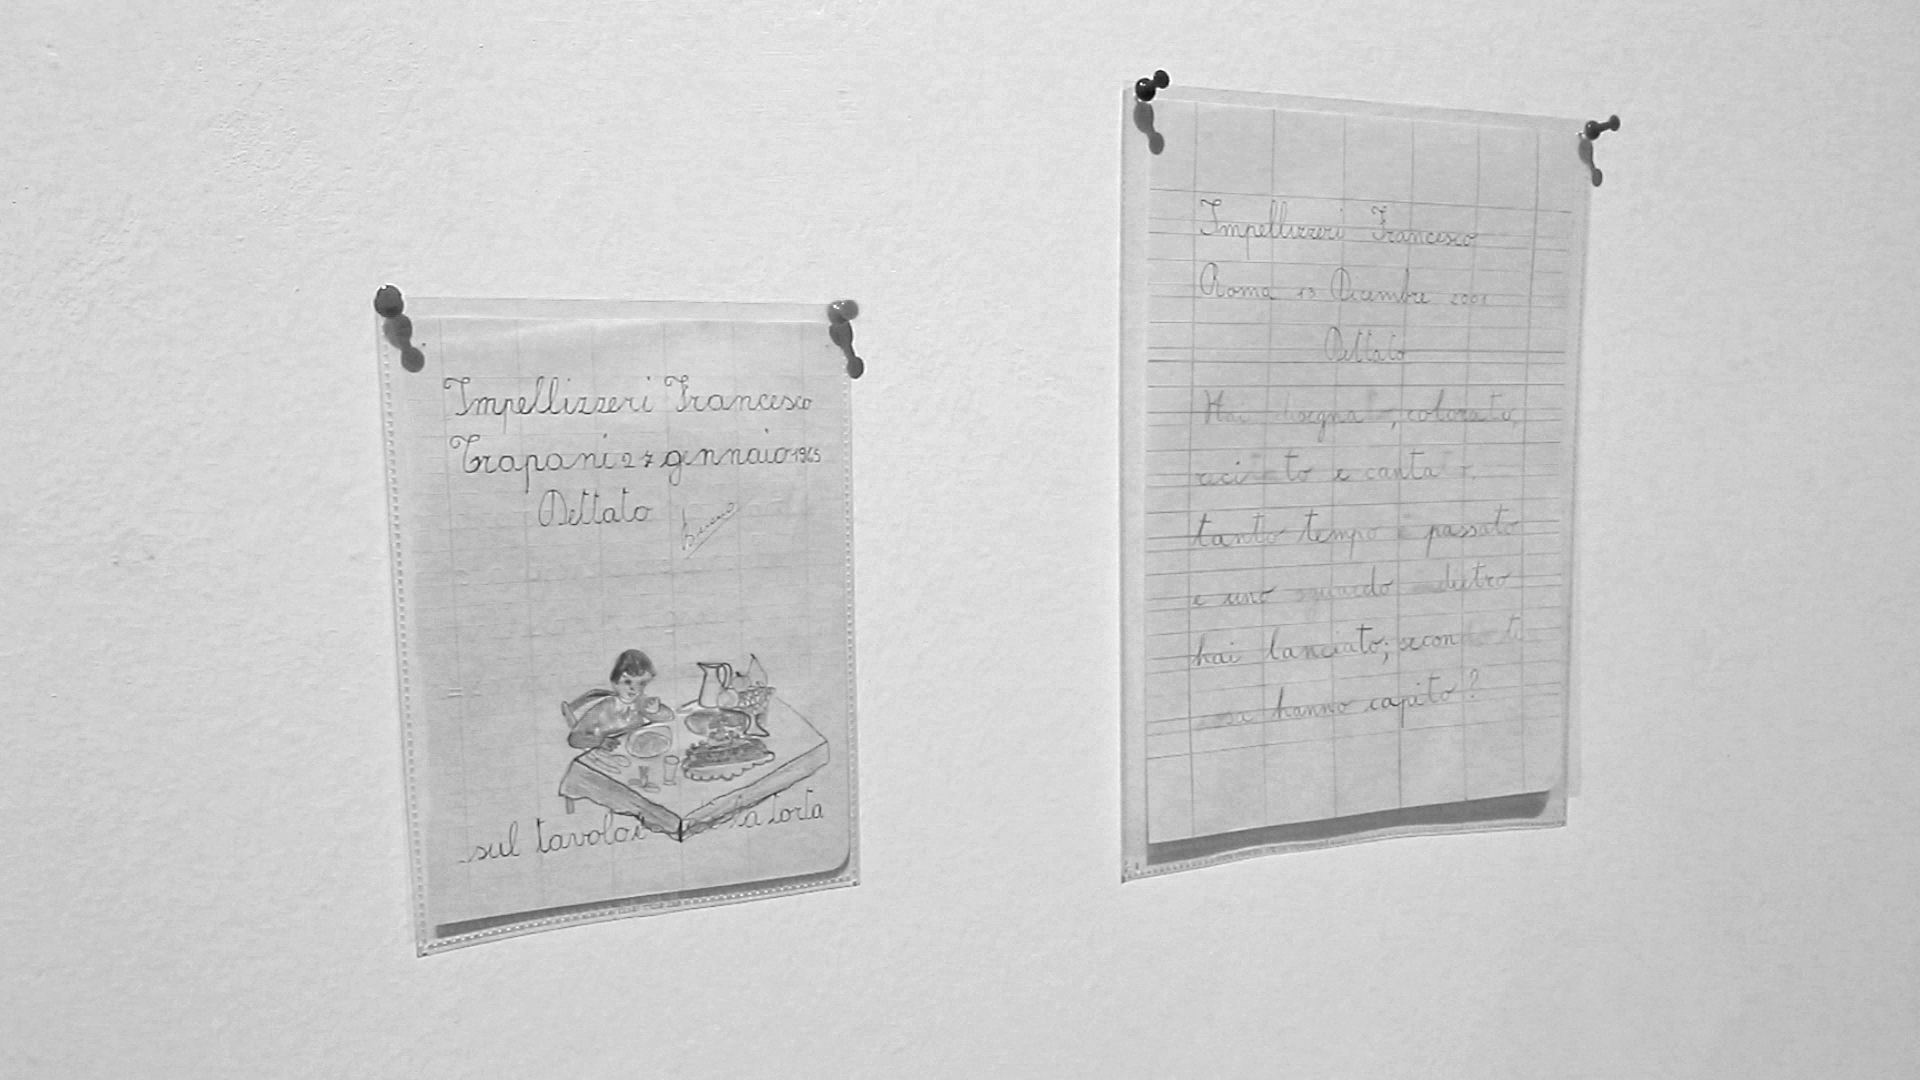 Impellizzeri Francesco
Trapani 27 gennaio 1965
Dettato
Buono
sul tavolo la torta
Impellizzeri Francesco
Roma 13 Dicembre 2001
Dettato
Hai colorato,
e
tanto tempo è passato
e uno sguardo dietro
hai lanciato; secondo te
cosa hanno capito?